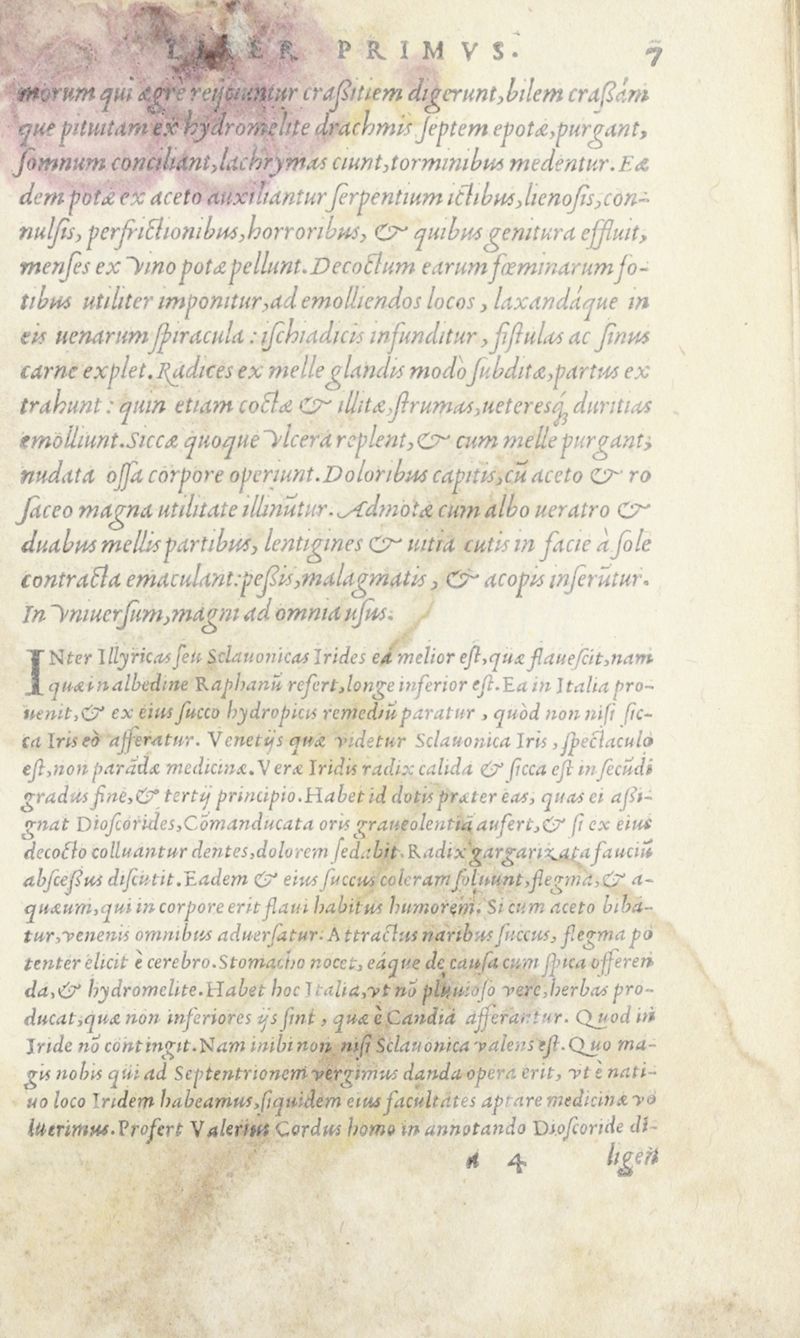 LIBER PRIMVS. 7
morum qui ægrè reijciuntur craßitiem digerunt, bilem craßám
que pituitam ex hydromelite drachmis septem epotæ, purgant,
somnum conciliant, lachrymas ciunt, torminibus medentur. Eæ
dem potæ ex aceto auxiliantur serpentium ictibus, lienosis, con-
nulsis, perfrictionibus, horroribus, & quibus genitura effluit,
menses ex vino potæ pellunt. Decoctum earum fœminarum fo-
tibus utiliter imponitur, ad emolliendos locos, laxandáque in
eis uenarum spiracula: ischiadicis infunditur, fistulas ac sinus
carne explet. Radices ex melle glandis modò subditæ, partus ex
trahunt: quin etiam coctæ & illitæ, strumas, ueteresq́; duritias
emolliunt. Siccæ quoque vlcera replent, & cum melle purgant;
nudata ossa corpore operiunt. Doloribus capitis, cū aceto & ro
saceo magna utilitate illinūtur. Admotæ cum albo ueratro &
duabus mellis partibus, lentigines & uitia cutis in facie à sole
contracta emaculant: peßis, malagmatis, & acopis inserūtur.
In vniuersum, magni ad omnia usus.
INter Illyricas seu Sclauonicas Irides ea melior est, quæ flauescit, nam
quæ in albedine Raphanū refert, longe inferior est. Ea in Italia pro-
uenit, & ex eius succo hydropicis remediū paratur, quòd non nisi sic-
ca Iris eò afferatur. Venetijs quæ videtur Sclauonica Iris, spectaculo
est, non paradæ medicinæ. Veræ Iridis radix calida & sicca est in secūdi
gradus fine, & tertij principio. Habet id dotis præter eas, quas ei aßi-
gnat Dioscorides, Cōmanducata oris graueolentiā aufert, & si ex eius
decocto colluantur dentes, dolorem sedabit. Radix gargarizata fauciū
abscessus discutit. Eadem & eius succus coleram soluunt, flegma, & a-
quæum, qui in corpore erit flaui habitus humorem. Si cum aceto biba-
tur, venenis omnibus aduersatur. Attractus naribus succus, flegma po
tenter elicit è cerebro. Stomacho nocet, eáque de causa cum spica offeren
da, & hydromelite. Habet hoc Italia, vt nō pluuioso vere, herbas pro-
ducat, quæ non inferiores ijs sint, quæ è Candia afferantur. Quod in
Iride nō contingit. Nam inibi non nisi Sclauonica valens est. Quo ma-
gis nobis qui ad Septentrionem vergimus danda opera erit, vt è nati-
uo loco Iridem habeamus, siquidem eius facultates aptare medicinæ vo
luerimus. Profert Valerius Cordus homo in annotando Dioscoride di-
A 4 ligen